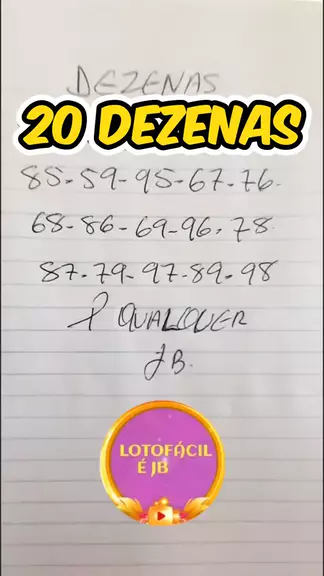 DEZENAS
20 DEZENAS
85-59-95-67-76.
68-86-69-96.78
87-79-97-89-98
P QUALQUER
JB.
LOTOFÁCIL
É JB